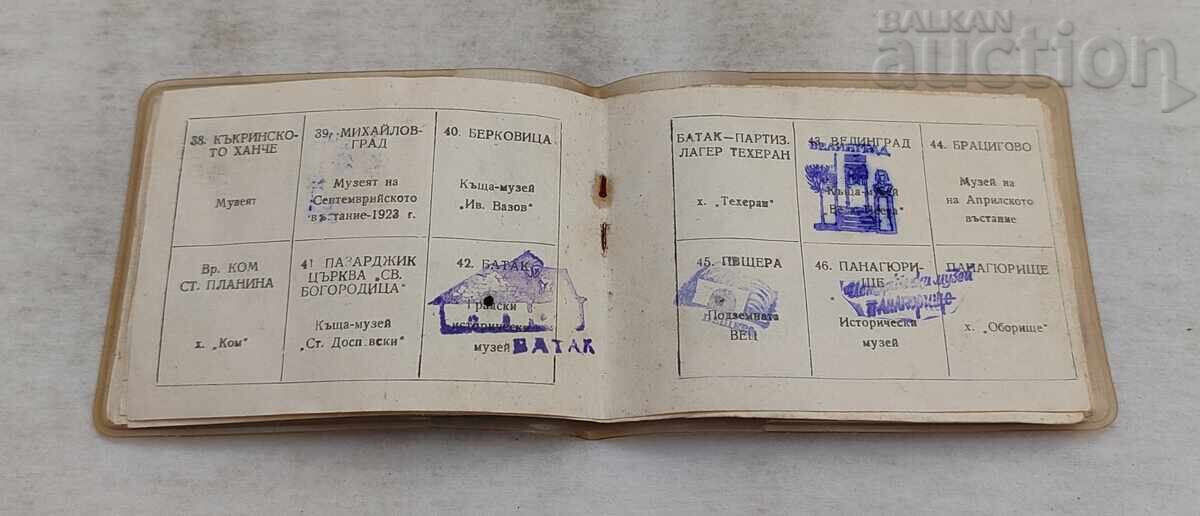 BALKAN
auction
38. КЪКРИНСКО-
ТО ХАНЧЕ
Музеят
39. МИХАЙЛОВ-
ГРАД
Музеят на
Септемврийското
въстание-1923 г.
40. БЕРКОВИЦА
Къща-музей
„Ив. Вазов"
Вр. КОМ
СТ. ПЛАНИНА
х. „Ком"
41 ПАЗАРДЖИК
ЦЪРКВА „СВ.
БОГОРОДИЦА"
Къща-музей
„Ст. Досп вски"
42. БАТАК
Градски
исторически
музей
БАТАК
БАТАК—ПАРТИЗ.
ЛАГЕР ТЕХЕРАН
х. „Техеран"
43. ВЕЛИНГРАД
ВЕЛИНГРАД
Къща-музей
44. БРАЦИГОВО
Музей на
на Априлското
въстание
45. ПЕЩЕРА
Подземната
ВЕЦ
ПЕЩЕРА
46. ПАНАГЮРИ-
ЩЕ
Исторически
музей
музей
ПАНАГЮРИЩЕ
ПАНАГЮРИЩЕ
х. „Оборище"